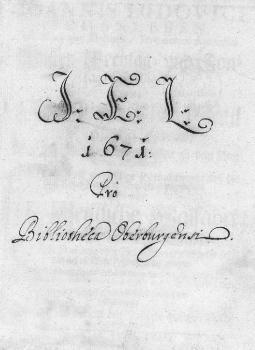 J. E. L.
1671.
Pro
Bibliotheca Oberburgensi.